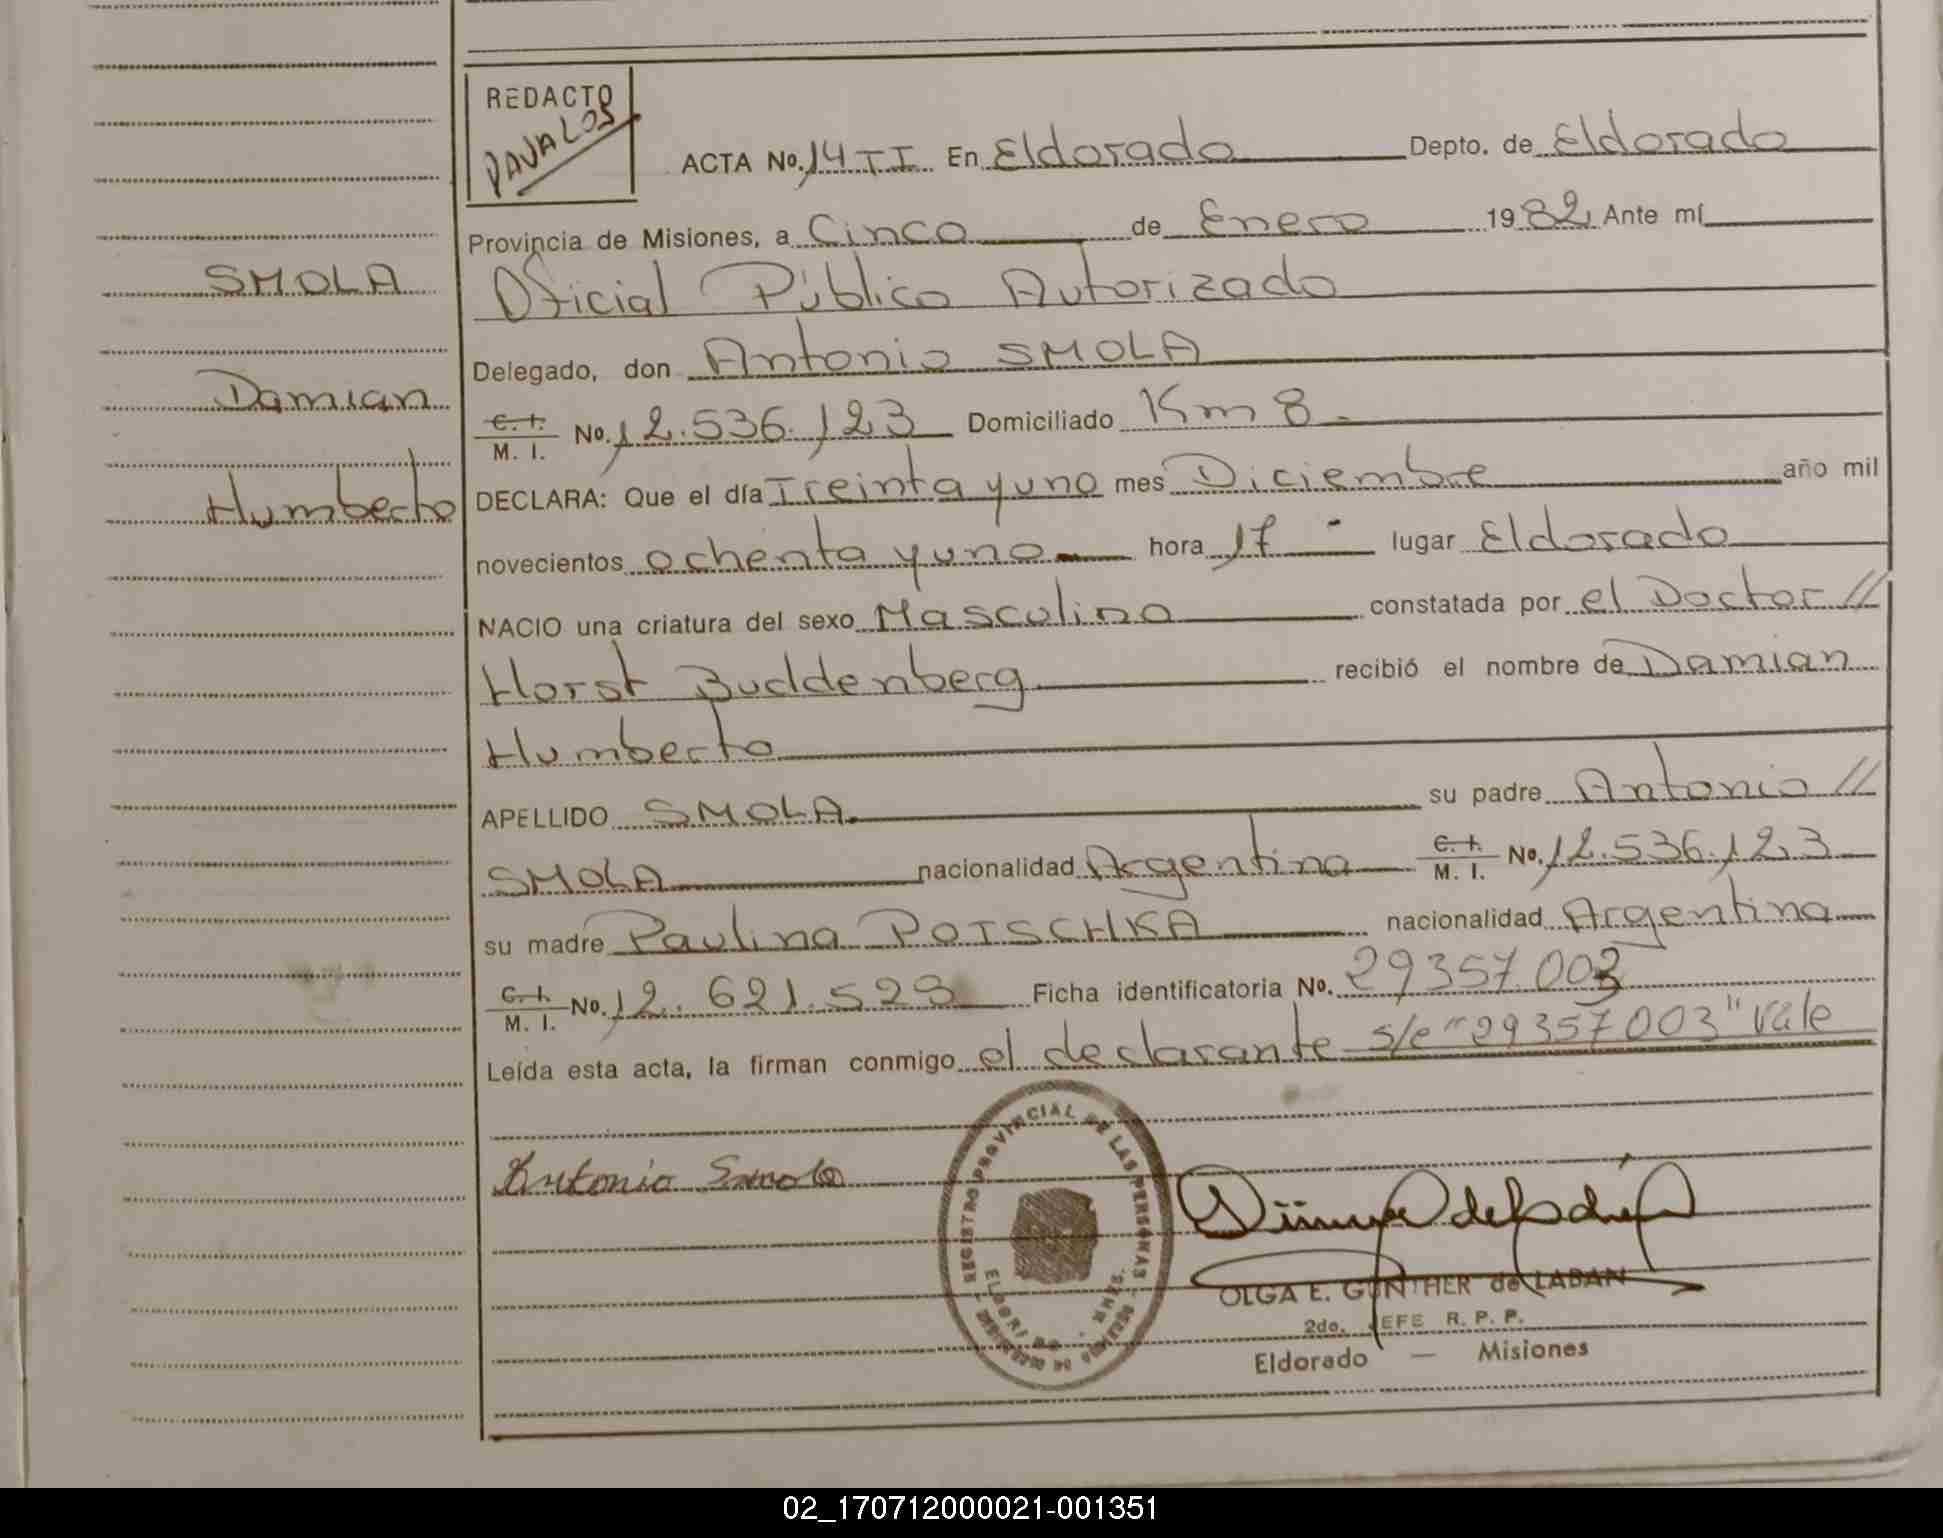 REDACTO
DAVALOS
ACTA No. 14 TI En Eldorado Depto. de Eldorado
Provincia de Misiones, a Cinco de Enero 1982 Ante mí
Oficial Público Autorizado
SMOLA
Delegado, don Antonio SMOLA
Damian
C. I. M. I. No. 12.536.123 Domiciliado Km 8.
Humberto
DECLARA: Que el día Treinta y uno mes Diciembre año mil
novecientos ochenta y uno hora 17 - lugar Eldorado
NACIO una criatura del sexo Masculino constatada por el Doctor //
Horst Buddenberg recibió el nombre de Damian
Humberto
APELLIDO SMOLA su padre Antonio //
SMOLA nacionalidad Argentina C. I. M. I. No. 12.536.123
su madre Paulina POTSCHKA nacionalidad Argentina
C. I. M. I. No. 12.621.529 Ficha identificatoria No. 29357.003
Leída esta acta, la firman conmigo el declarante s/e "29357003" Vale
Antonio Smola
REGISTRO PROVINCIAL DE LAS PERSONAS
OLGA E. GUNTHER de LABAN
2do. JEFE R. P. P.
Eldorado — Misiones
02_170712000021-001351